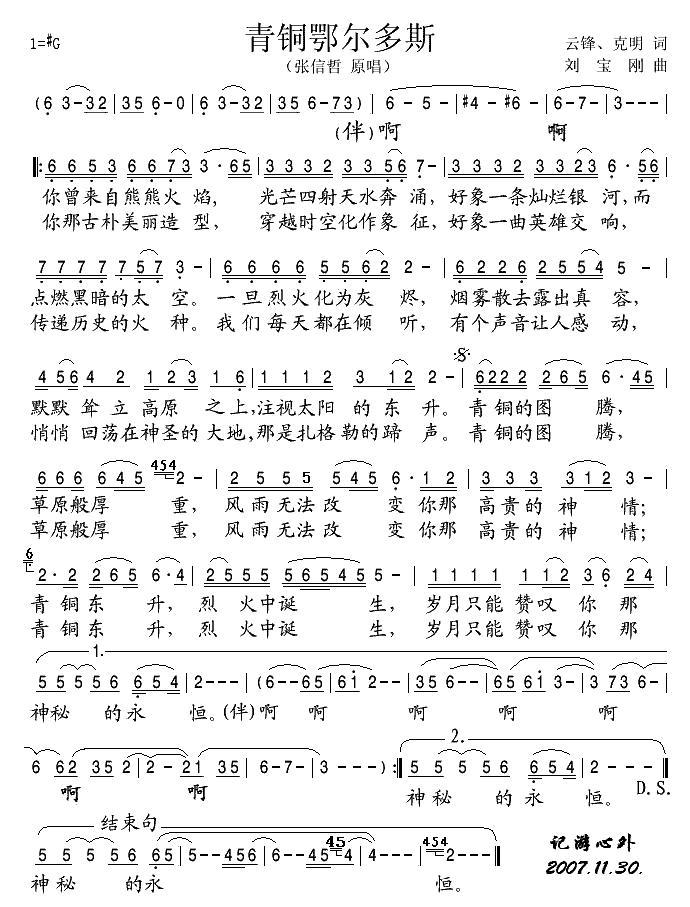 青铜鄂尔多斯
1=#G
(张信哲 原唱)
云锋、克明 词
刘 宝 刚 曲
(6 3-32|35 6-0|6 3-32|35 6-73)|6 - 5 -|#4 - #6 -|6-7-|3---|
(伴)啊 啊
‖:6 6 5 3 6 6 73 3·65|3 3 3 3 3 3 56 7-|3 3 3 3 3 323 6· 56|
你曾来自熊熊火 焰, 光芒四射天水奔 涌, 好象一条灿烂银 河,而
你那古朴美丽造 型, 穿越时空化作象 征, 好象一曲英雄交 响,
7 7 7 7 7 57 3 -|6 6 6 6 5 5 62 2 -|6 2 2 6 2 5 5 4 5 -|
点燃黑暗的太 空。一旦烈火化为灰 烬, 烟雾散去露出真 容,
传递历史的火 种。我们每天都在倾 听, 有个声音让人感 动,
4 56 4 2 1 2 3 1 6|1 1 1 2 3 12 2 -|6222 265 6·45|
默默 耸 立 高原 之上,注视太阳 的 东 升。青 铜的图 腾,
悄悄 回荡在神圣的 大地,那是扎格 勒的蹄 声。青 铜的图 腾,
6 6 6 6 4 5 454 2 -|2 5 5 5 5 4 5 6·1 2|3 3 3 3 1 2 3 -|
草原般厚 重, 风雨无法改 变 你那 高贵的 神 情;
草原般厚 重, 风雨无法改 变 你那 高贵的 神 情;
6 2·2 2 6 5 6·4|2555 56545 5-|1 1 1 1 1 12 3 6 24|
青 铜东 升, 烈 火中诞 生, 岁月只能 赞叹 你 那
青 铜东 升, 烈 火中诞 生, 岁月只能 赞叹 你 那
1.
5 5 5 5 6 6 5 4|2---|(6--65|61 2--|35 6--|65 613-|3 73 6-|
神秘 的永 恒。(伴)啊 啊 啊 啊 啊
6 62 35 2|2 - 21 35|6-7-|3 ---):‖5 5 5 56 6 5 4|2 - - -|
2.
啊 啊 神秘 的永 恒。
D.S.
结束句
5 5 5 56 6 5 5|5--456|6--45 454|4---|454 2---‖
神秘 的永 恒。
记游心外
2007.11.30.